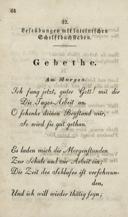 64
32.
Leseübungen mit lateinischen
Schreibbuchstaben.
Gebethe.
Am Morgen.
Ich fang jetzt, guter Gott! mit dir
Die Tages-Arbeit an.
O schenke deinen Beystand mir,
So wird sie gut gethan.
Es laden mich die Morgenstunden
Zur Schule und zur Arbeit ein;
Die Zeit des Schlafes ist verschwun-
den,
Und ich will wieder thätig seyn;